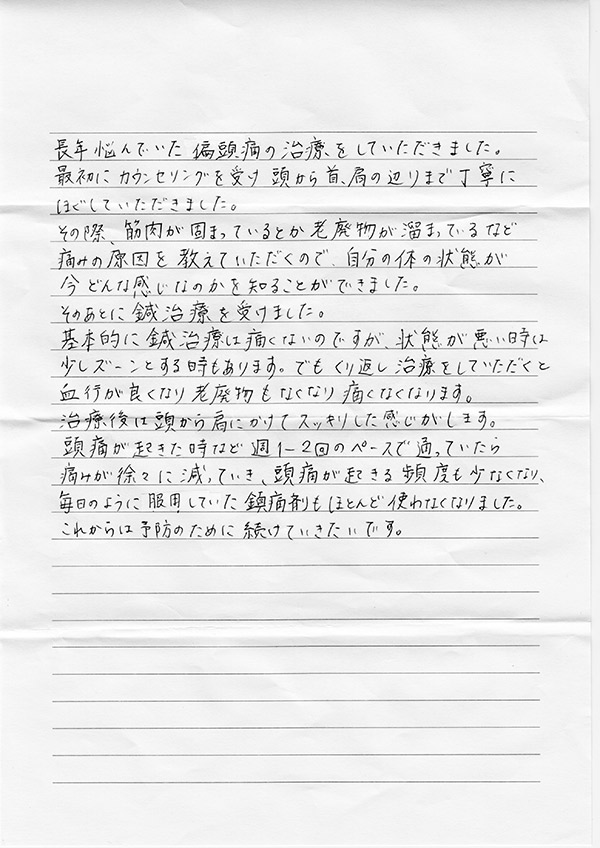 長年悩んでいた偏頭痛の治療をしていただきました。
最初にカウンセリングを受け頭から首、肩の辺りまで丁寧に
ほぐしていただきました。
その際、筋肉が固まっているとか老廃物が溜まっているなど
痛みの原因を教えていただくので、自分の体の状態が
今どんな感じなのかを知ることができました。
そのあとに鍼治療を受けました。
基本的に鍼治療は痛くないのですが、状態が悪い時は
少しズーンとする時もあります。でもくり返し治療をしていただくと
血行が良くなり老廃物もなくなり痛くなくなります。
治療後は頭から肩にかけてスッキリした感じがします。
頭痛が起きた時など週1~2回のペースで通っていたら
痛みが徐々に減っていき、頭痛が起きる頻度も少なくなり、
毎日のように服用していた鎮痛剤もほとんど使わなくなりました。
これからは予防のために続けていきたいです。